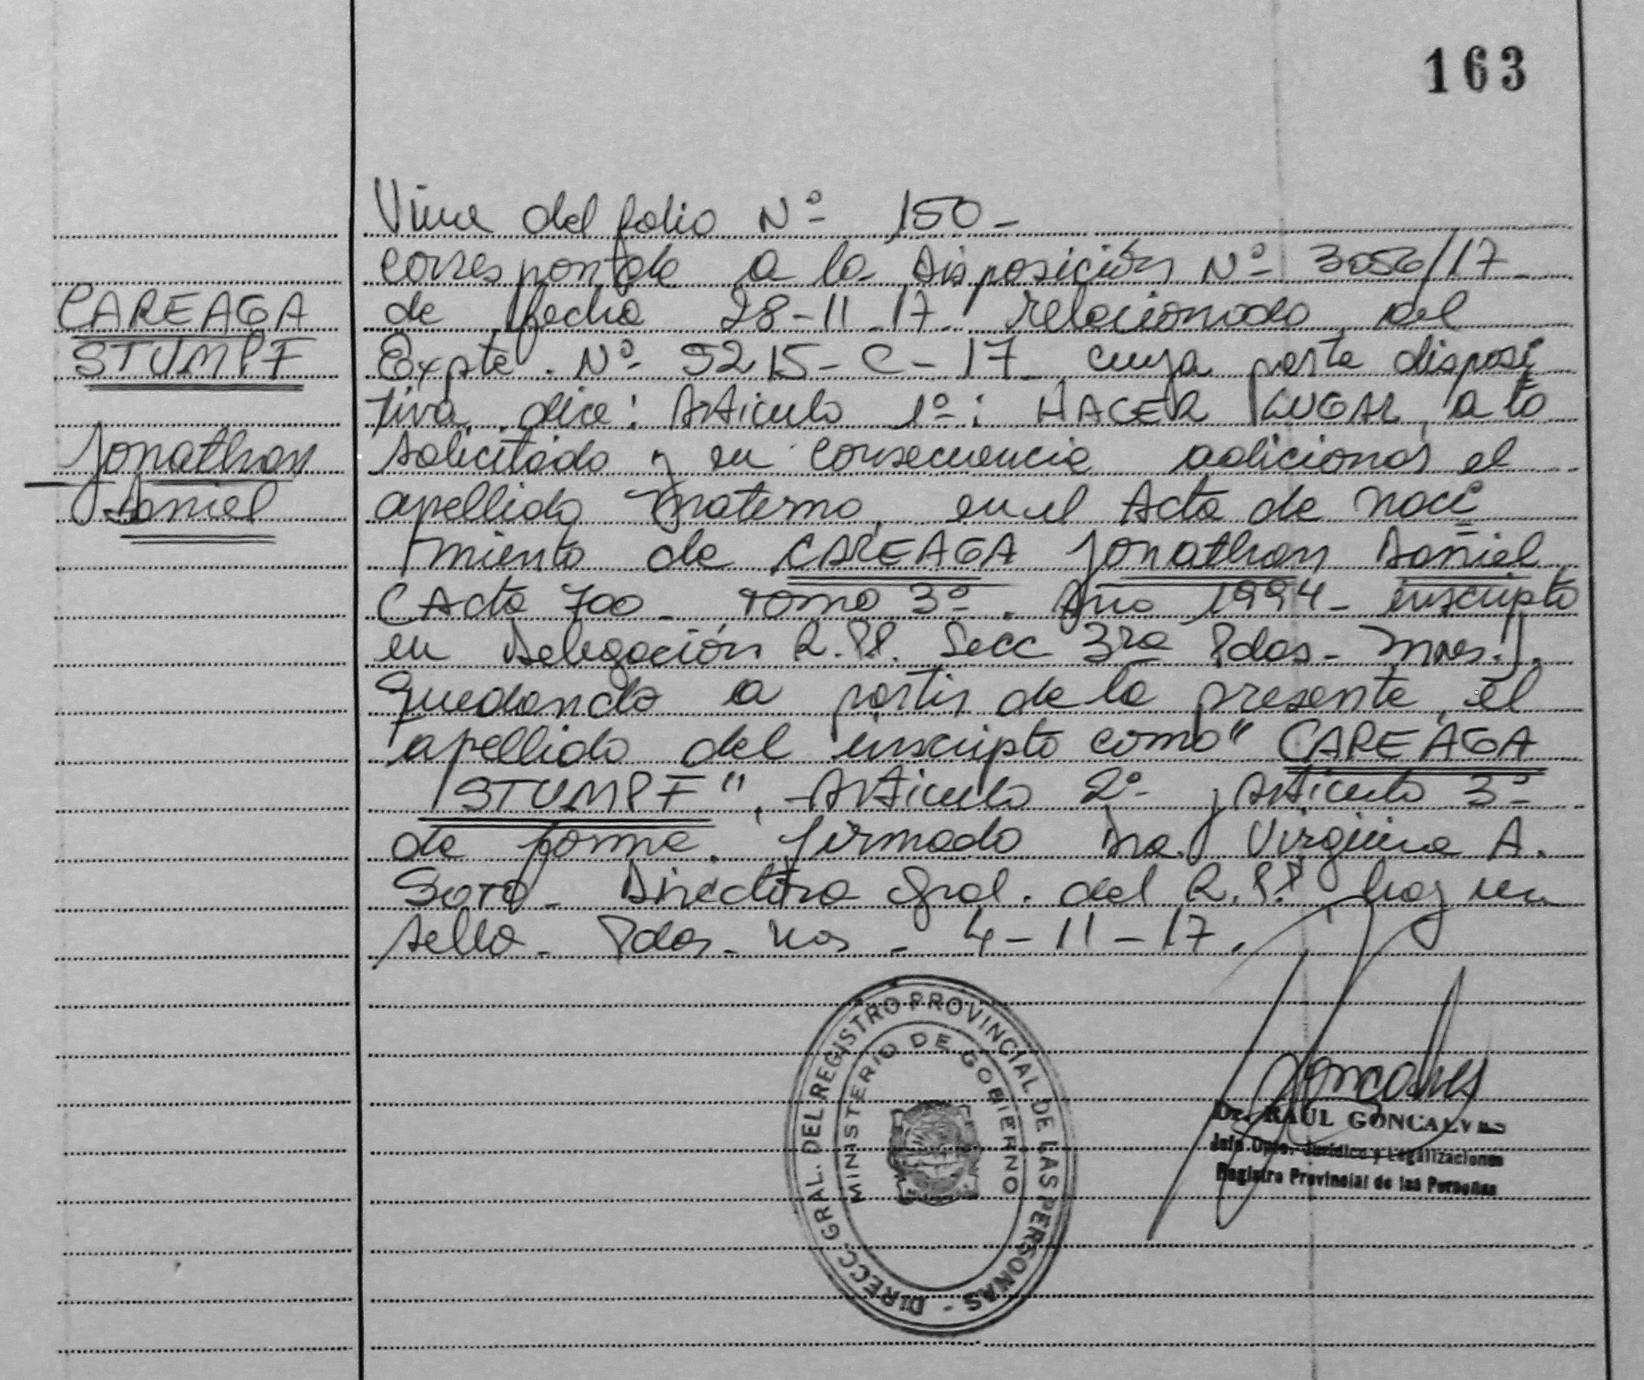 163
Viene del folio Nº 150-
correspondte a la Disposición Nº 3056/17-
de fecha 28-11-17. relacionado al
Expte. Nº 5215-C-17 cuya parte disposi
tiva dice: Articulo 1º: HACER LUGAR a lo
solicitado y en consecuencia adicionar el
apellido materno, en el Acta de naci
miento de CAREAGA Jonathan Daniel
(Acta 700- tomo 3º. Año 1994- inscripto
en Delegación R.PP. Secc 3ra Pdas- Mnes.).
quedando a partir de la presente, el
apellido del inscripto como "CAREAGA
STUMPF". Articulo 2º y Articulo 3º
de forma. firmado Dra. Virginia A.
Soto- Directora Gral. del R.PP. hay un
sello- Pdas- - 4-11-17.
CAREAGA
STUMPF
Jonathan
Daniel
DIRECC. GRAL. DEL REGISTRO PROVINCIAL DE LAS PERSONAS -
MINISTERIO DE GOBIERNO
Goncalves
Dr. RAUL GONCALVES
Jefe Dpto. Jurídico y Legalizaciones
Registro Provincial de las Personas